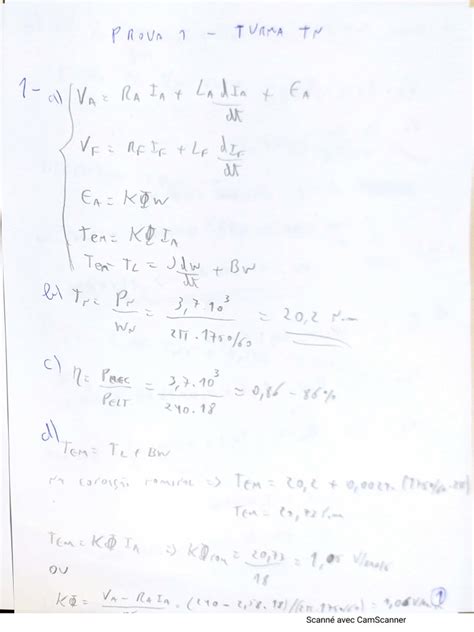 PROVA 1 - TURMA TN
1- a) VA = RA IA + LA dIA/dt + EA
VF = RF IF + LF dIF/dt
EA = KΦW
TEM = KΦ IA
TEM - TL = J dW/dt + BW
b) TN = PN/WN = 3,7·10³/2π·1750/60 = 20,2 N.m
c) η = PMEC/PELT = 3,7·10³/240·18 = 0,86 - 86%
d) TEM = TL + BW
Na condição nominal => TEM = 20,2 +
TEM =
TEM = KΦ IA => = 20,73/18 =
OU
KΦ = VA - RA IA
1
Scanné avec CamScanner